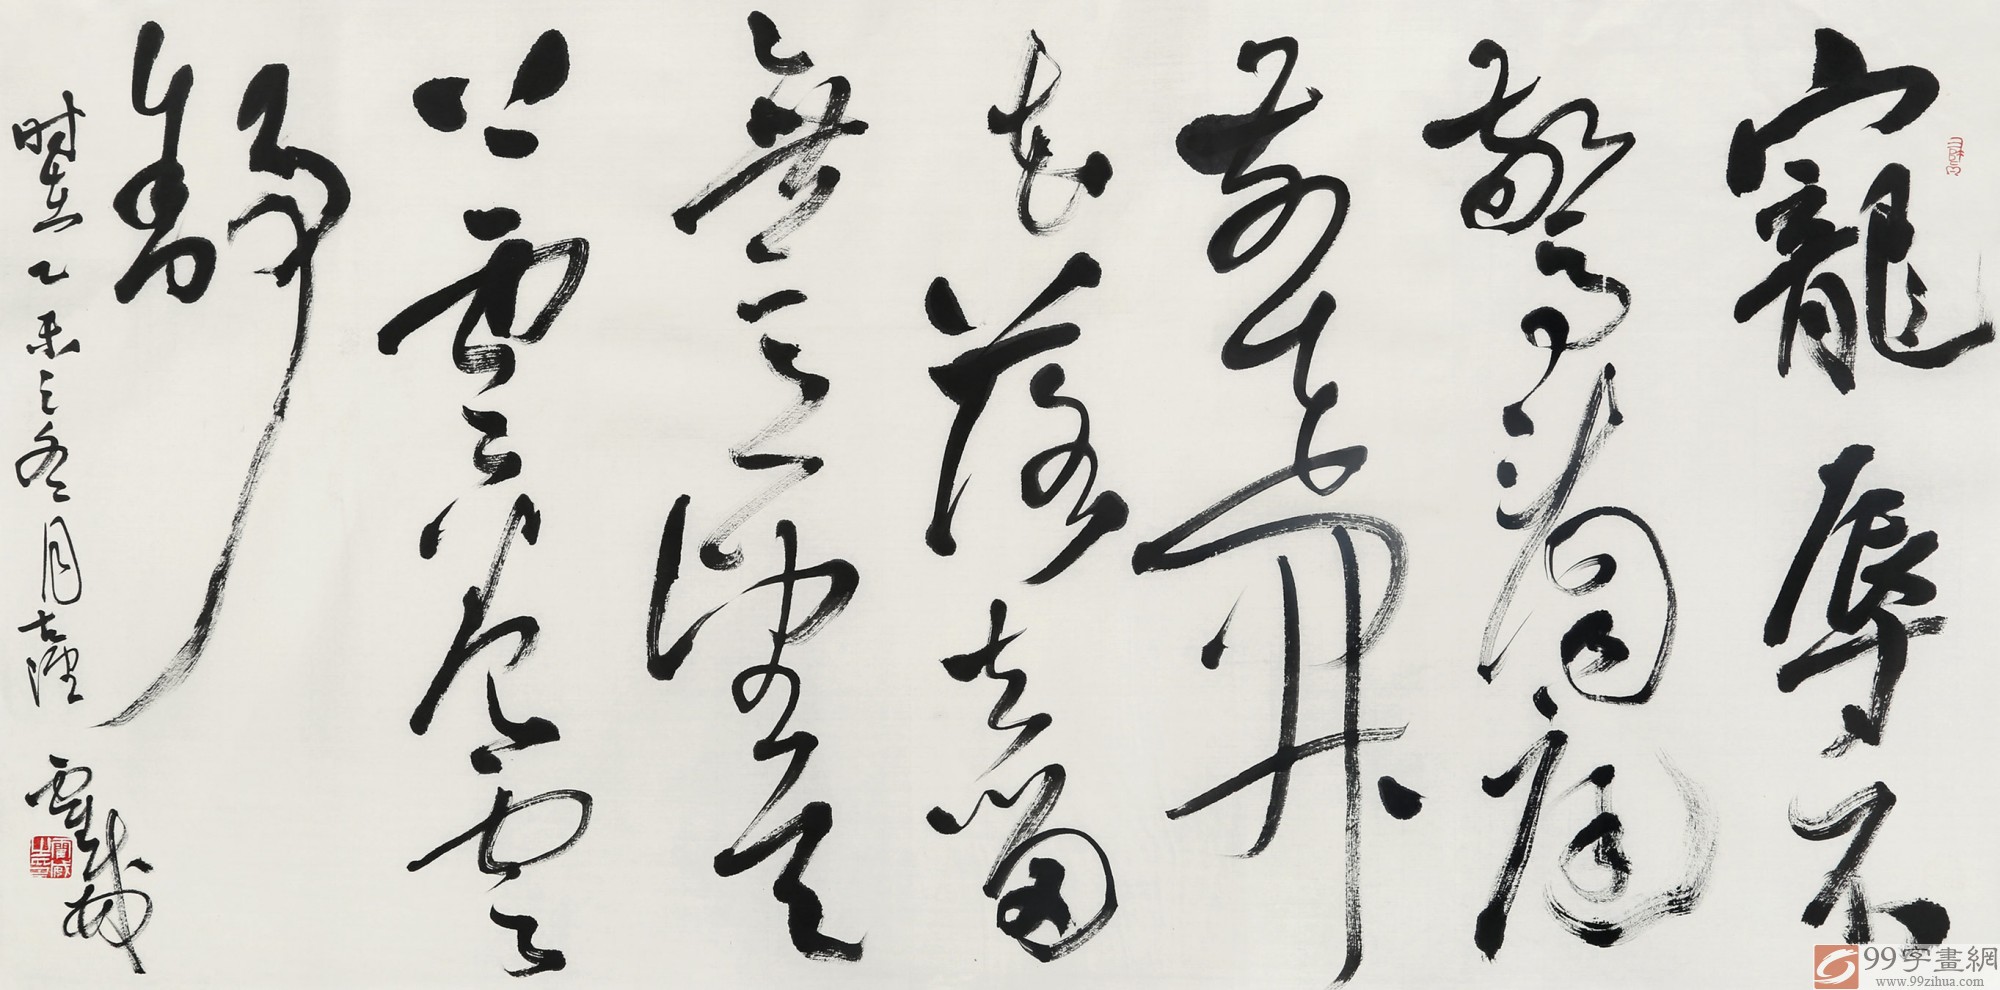 寵辱不
驚看庭
前花開
花落去留
無意天
雲卷雲
舒
时在乙未之冬月古
99字畫網
www.99zihua.com